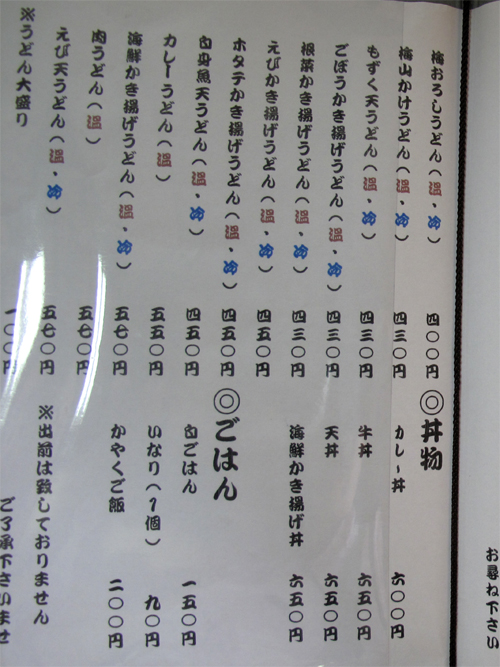 お尋ね下さい
梅おろしうどん(温・冷) 四〇〇円
梅山かけうどん(温・冷) 四三〇円
もずく天うどん(温・冷) 四三〇円
ごぼうかき揚げうどん(温・冷) 四三〇円
根菜かき揚げうどん(温・冷) 四三〇円
えびかき揚げうどん(温・冷) 四五〇円
ホタテかき揚げうどん(温・冷) 四五〇円
白身魚天うどん(温・冷) 四五〇円
カレーうどん(温) 五五〇円
海鮮かき揚げうどん(温・冷) 五七〇円
肉うどん(温) 五七〇円
えび天うどん(温・冷) 五七〇円
※うどん大盛り 一〇〇円
◎丼物
カレー丼 六〇〇円
牛丼 六五〇円
天丼 六五〇円
海鮮かき揚げ丼 六五〇円
◎ごはん
白ごはん 一五〇円
いなり(1個) 九〇円
かやくご飯 二〇〇円
※出前は致しておりません
ご了承下さいませ